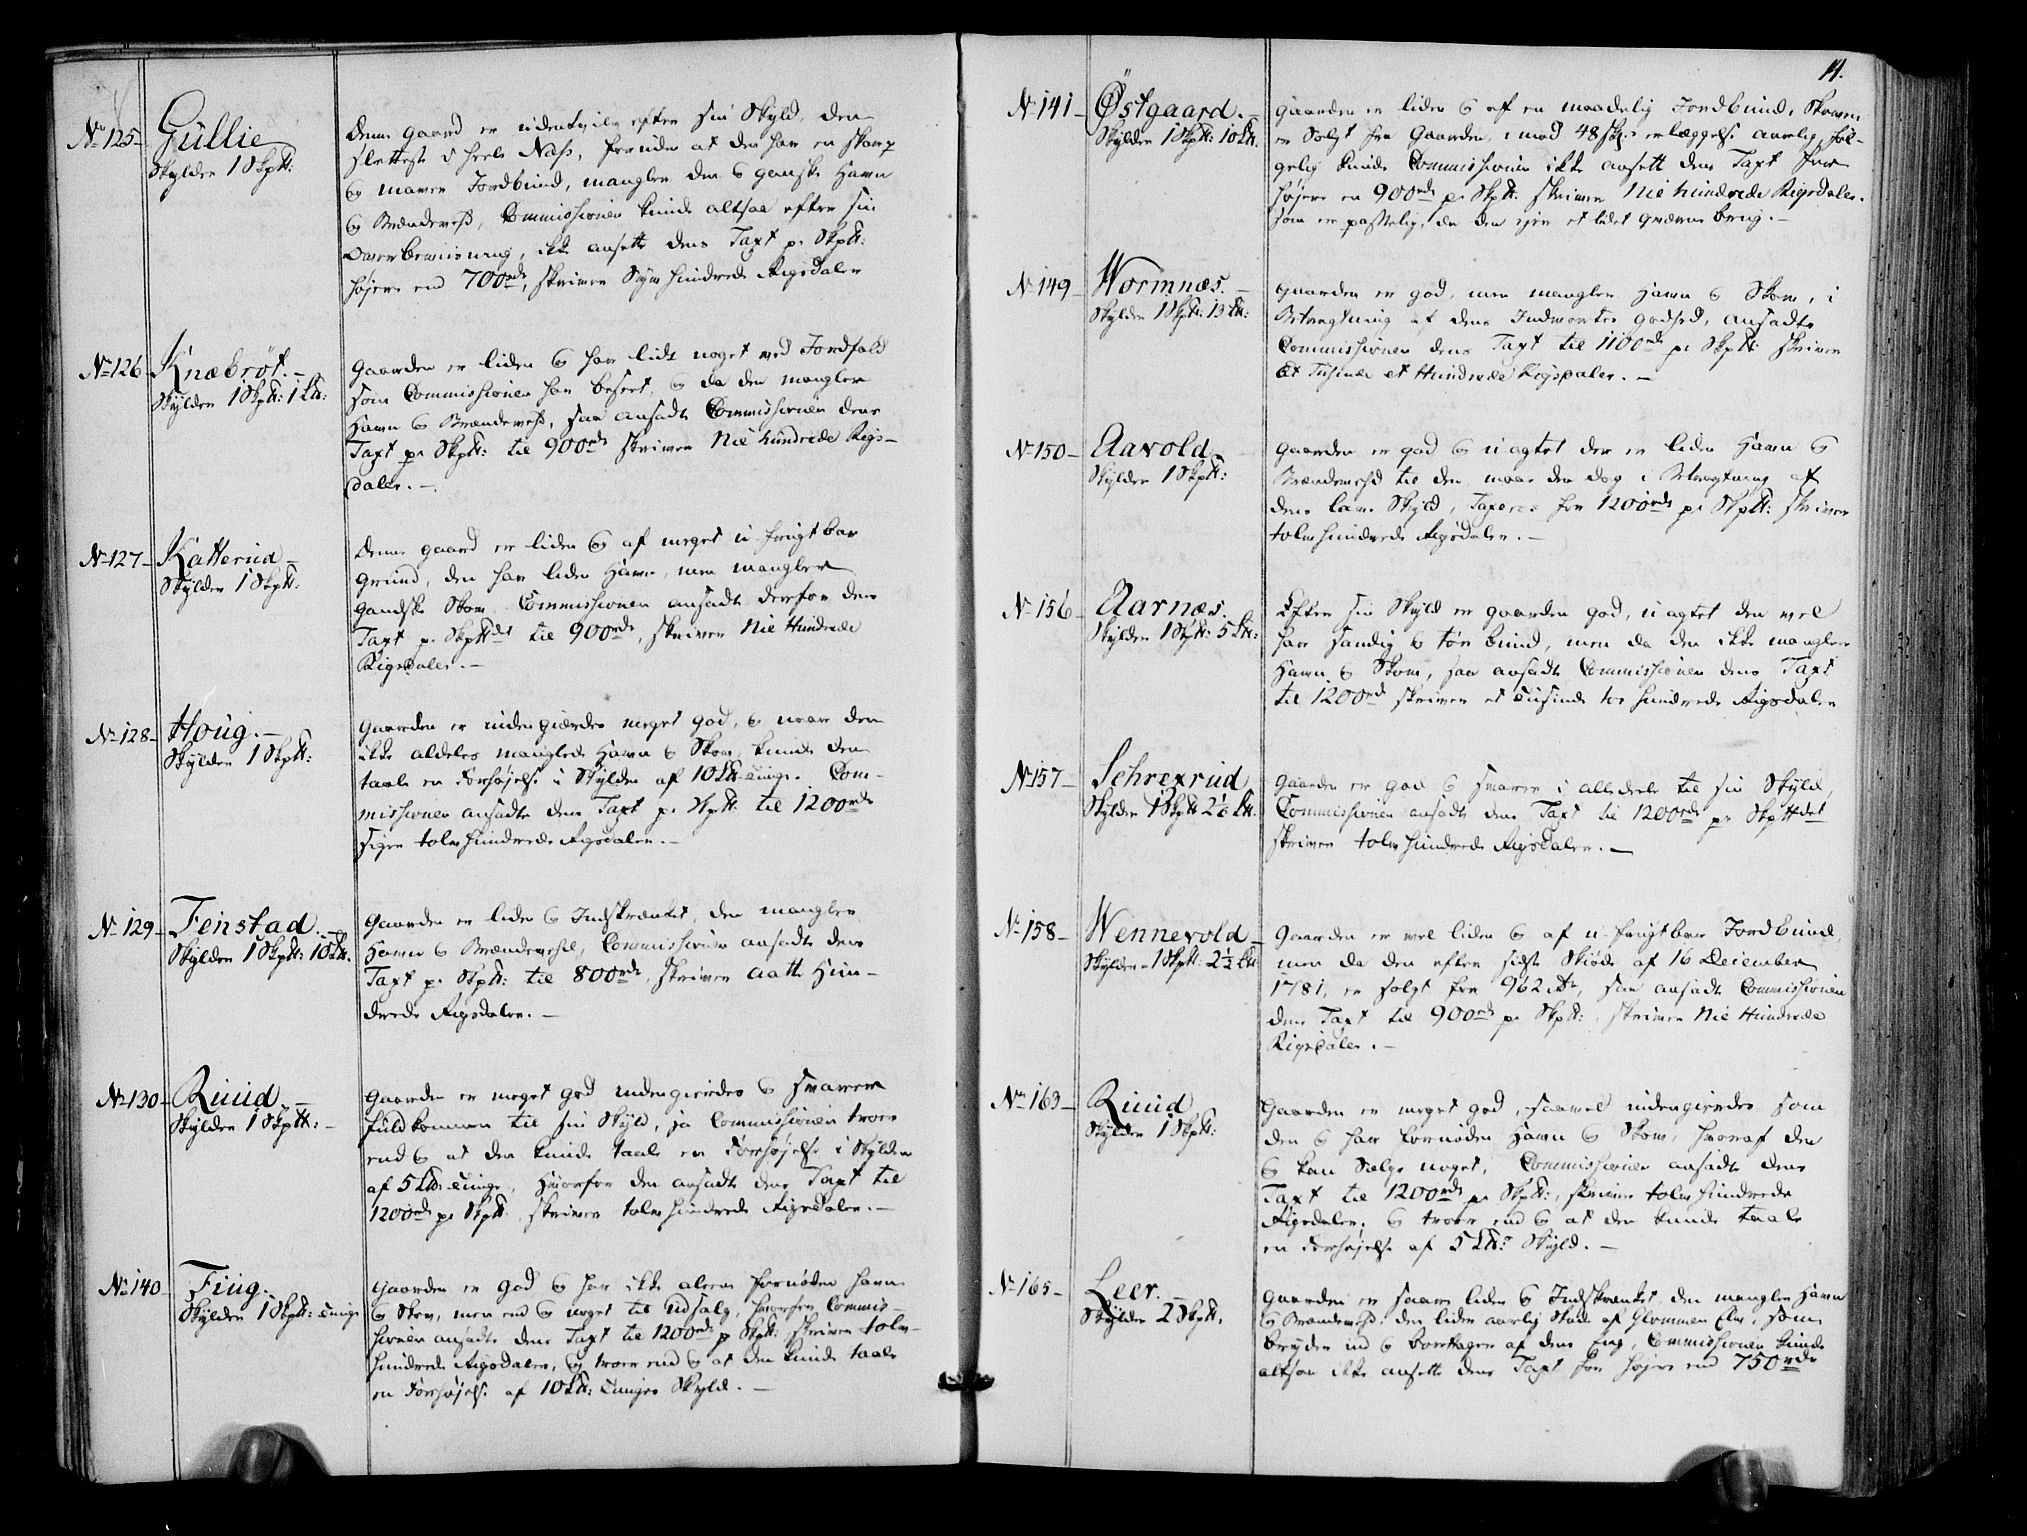 No 125 Gullie
Skylder 1 Skpd:
Denne gaard er udentvivl efter sin Skyld, den
sletteste i heele Næss, foruden at den har en skarp
og maver Jordbund, mangler den og ganske Havn
og Brændeveed, Commissionen kunde altsaa efter sin
Overbeviisning, ikke ansette dens Taxt pr Skpd:
højere end 700rd, skriver Syv hundrede Rigsdaler
No 126 Knæbrøt. –
Skylder 1 Skpd: 1 Lb:
Gaarden er liden og har lidt noget ved Jordfald
som Commissionen har beseet, og da den mangler
Havn og Brændeveed, saa ansadte Commissionen dens
Taxt pr Skpd: til 900rd skriver Nie hundrede Rigs-
daler. –
No 127 Katterud –
Skylder 1 Skpd:
Denne gaard er liden og af meget ufrugtbar
Grund, den har liden Havn, men mangler
gandske Skov, Commissionen ansadte derfor dens
Taxt pr Skpdet til 900rd, skriver Nie Hundrede
Rigsdaler. –
No 128 Houg. –
Skylder 1 Skpd:
Gaarden er indengierdes meget god, og naar den
ikke aldeles manglede Havn og Skov, kunde den
taale en Forhøjelse i Skylden af 10 Lb: Tunge. Com-
missionen ansadte dens Taxt pr Skpd: til 1200rd
siger tolvhundrede Rigsdaler. –
No 129 Fenstad. –
Skylder 1 Skpd: 10 Lb.
Gaarden er liden og Indskrænket, den mangler
Havn og Brændeveed, Commissionen ansadte dens
Taxt pr Skpd: til 800rd, skriver aatte Hun-
drede Rigsdaler. –
No 130 Ruud. –
Skylder 1 Skpd: –
Gaarden er meget god indengierdes og svarer
fuldkommen til sin Skyld, ja Commissionen troer
end og at den kunde taale en Forhøjelse i Skylden
af 5 Lb: Tunge, hvorfor den ansadte dens Taxt til
1200rd pr Skpd: skriver tolvhundrede Rigsdaler. –
No 140 Fiug. –
Skylder 1 Skpd: Tunge
Gaarden er god og har ikke alene fornøden Havn
og Skov, men end og noget til udsalg, hvorfor Commis-
sionen ansadte dens Taxt til 1200rd pr Skpd: skriver tolv-
hundrede Rigsdaler, og troer end og at den kunde taale
en Forhøjelse af 10 Lb: Tunges Skyld. –
14.
No 141 – Østgaard. –
Skylder 1 Skpd: 10 Lb.
Gaarden er liden og af en maadelig Jordbund, Skoven
er Solgt fra Gaarden, imod 48 sk: erlæggelse aarlig, føl-
gelig kunde Commissionen ikke ansett dens Taxt
højere en 900rd pr Skpd: skriver Nie hundrede Rigsdaler.
som er passelig, da den ejer et lidet Qværne brug. –
No 149 – Wormnæs. –
Skylder 1 Skpd: 13 Lb:
Gaarden er god, men mangler Havn og Skov, i
Betragtning af dens Indmarkes godhed, ansadte
Commissionen dens Taxt til 1100rd pr Skpd: skriver
Et Tusinde et Hundrede Rigsdaler. –
No 150 – Aavold
Skylder 1 Skpd:
Gaarden er god og uagtet der er liden Havn og
Brændeveed til den, maae den dog i Betragtning af
dens lave Skyld, Taxeres for 1200rd pr Skpd: skriver
tolvhundrede Rigsdaler. –
No 156 – Aarnæs.
Skylder 1 Skpd: 5 Lb:
Efter sin Skyld er gaarden god, uagtet den vel
har sandig og tør bund, men da den ikke mangler
Havn og Skov, saa ansadte Commissionen dens Taxt
til 1200rd skriver et Tusinde to hundrede Rigsdaler
No 157 – Schrexrud
Skylder 1 Skpd 2½ Lb.
Gaarden er god og svarer i alle deele til sin Skyld,
Commissionen ansadte dens Taxt til 1200rd pr Skpdet
skriver tolvhundrede Rigsdaler. –
No 158 – Wennevold –
Skylder – 1 Skpd: 2½ Lb
Gaarden er vel liden og af ufrugtbar Jordbund,
men da den efter sidste Skiøde af 16 December
1781, er solgt for 962 rd, saa ansadte Commissionen
dens Taxt til 900rd pr Skpd:, skriver Nie Hundrede
Rigsdaler. –
No 163 – Ruud
Skylder 1 Skpd:
Gaarden er meget god, saavel indengierdes som
den og har fornøden Havn og Skov, hvoraf den
og kan Sælge noget, Commissionen ansadte dens
Taxt til 1200rd pr Skpd:, skriver tolvhundrede
Rigsdaler, og troer end og at den kunde taale
en Forhøjelse af 5 Lb:s Skyld. –
No 165 – Leer. –
Skylder 2 Skpd.
Gaarden er saare liden og Indskrænket, den mangler Havn
og Brændeveed, den lider aarlig Skade af Glommen Elv, som
bryder ind og borttager af dens Eng, Commissionen kunde
altsaa ikke ansette dens Taxt for højere end 750rd